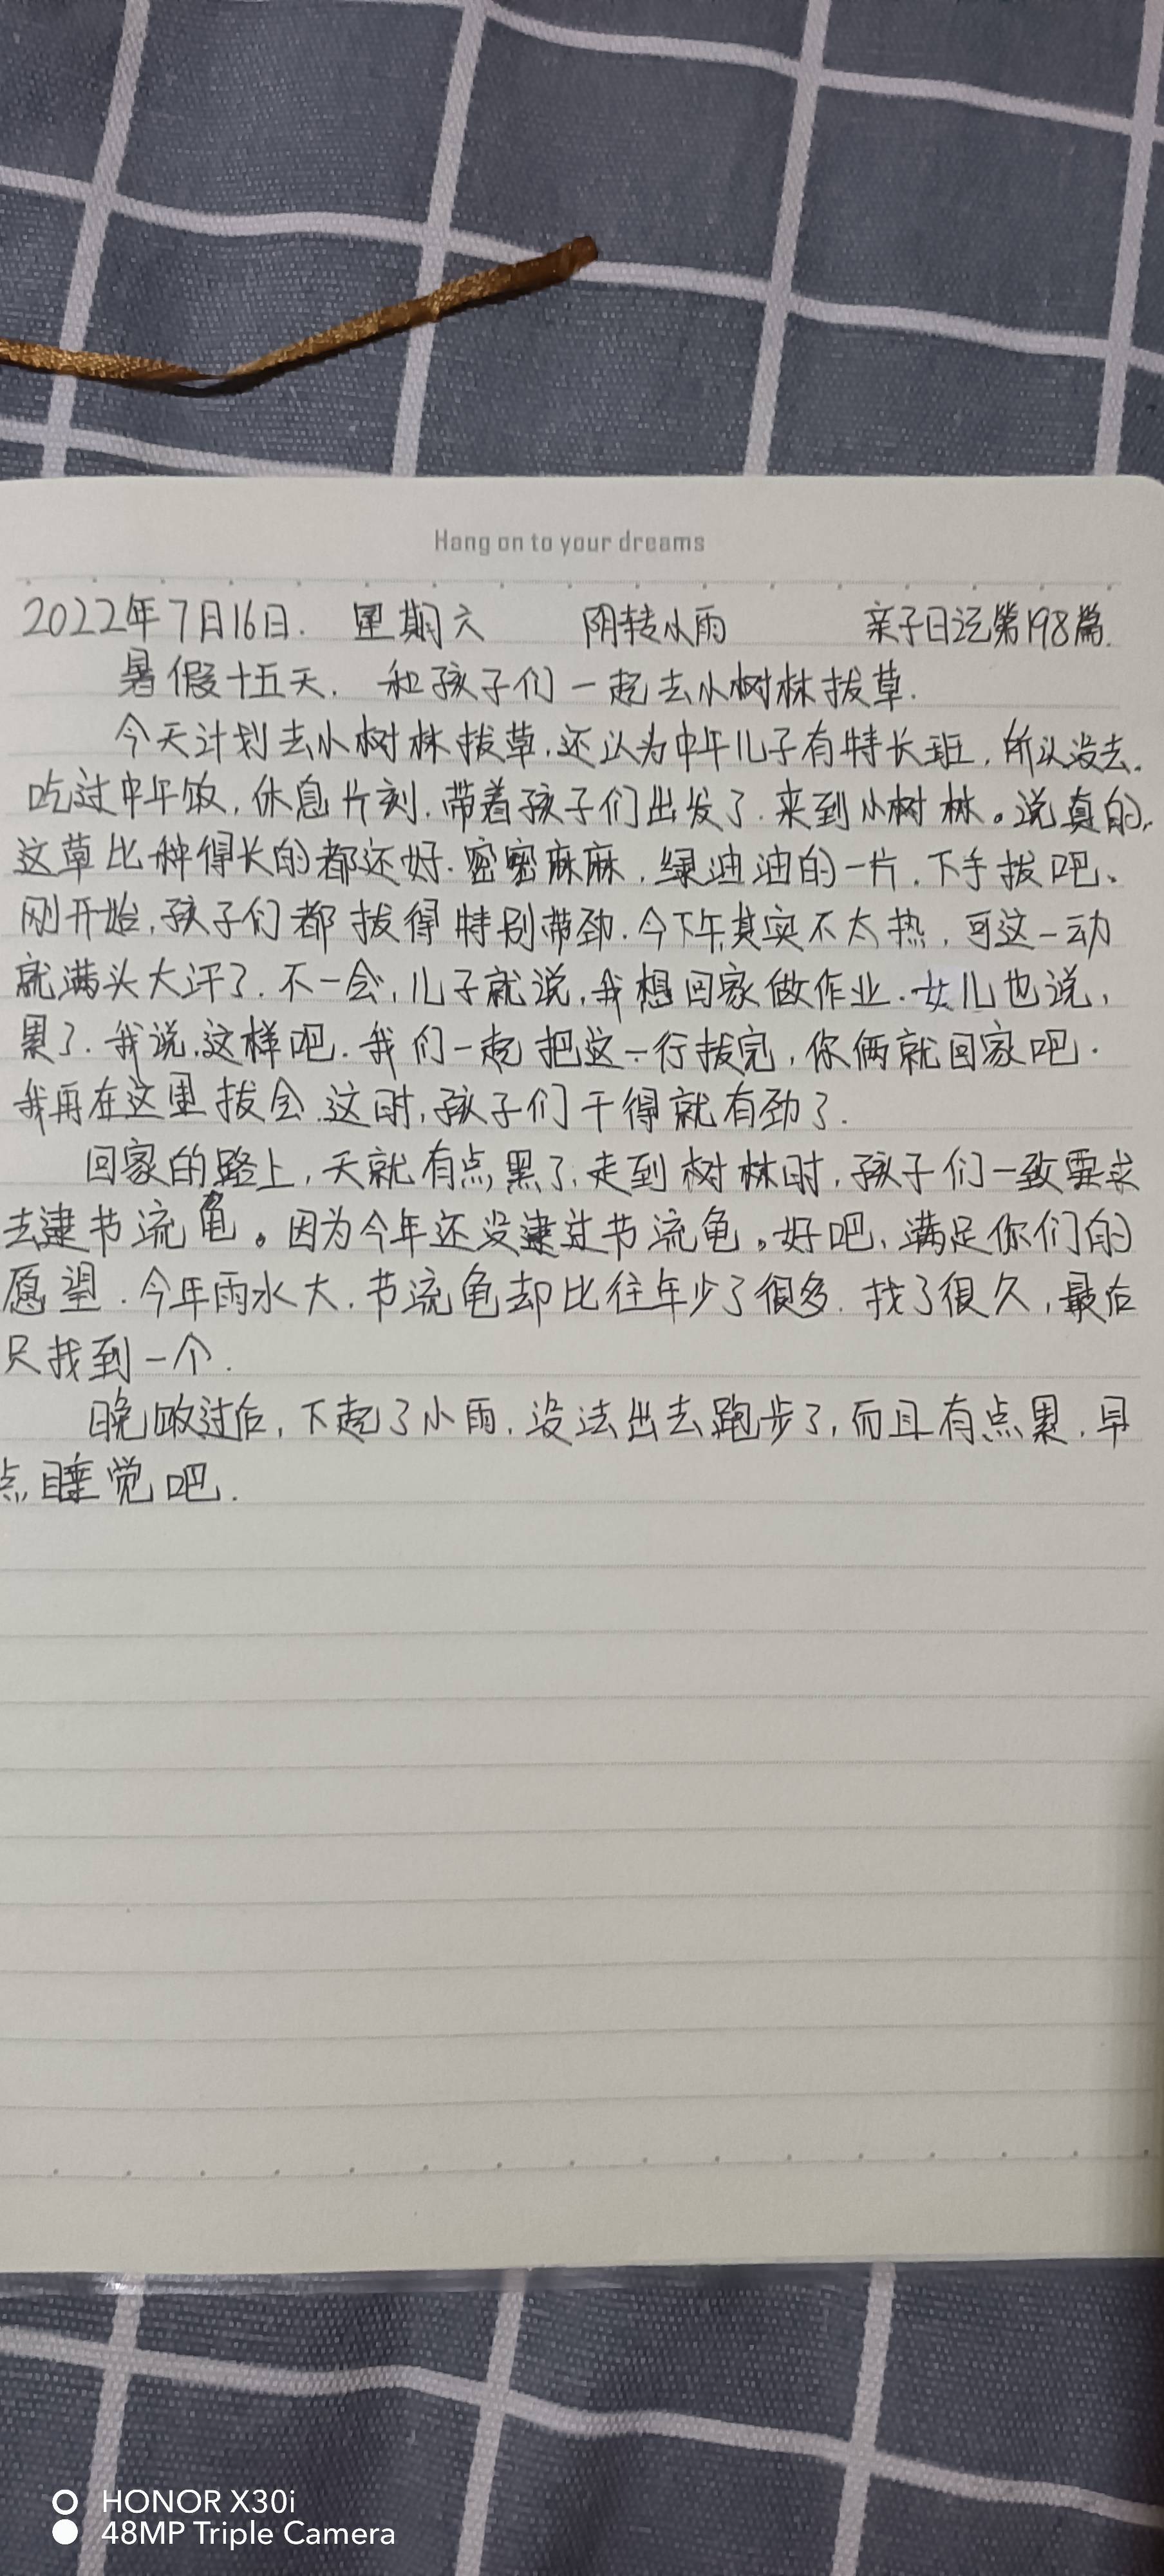 Hang on to your dreams
2022年7月16日. 星期六 阴转小雨 亲子日记第198篇.
暑假十五天. 和孩子们一起去小树林拔草.
今天计划去小树林拔草,还以为中午儿子有特长班,所以没去.
吃过中午饭,休息片刻.带着孩子们出发了.来到小树林。说真的,
这草比种得长的都还好.密密麻麻,绿油油的一片.下手拔吧、
刚开始,孩子们都拔得特别带劲.今下午其实不太热,可这一动
就满头大汗了.不一会,儿子就说,我想回家做作业.女儿也说,
累了.我说,这样吧.我们一起把这一行拔完,你俩就回家吧.
我再在这里拔会.这时,孩子们干得就有劲了.
回家的路上,天就有点黑了,走到树林时,孩子们一致要求
去逮节流龟。因为今年还没逮过节流龟。好吧,满足你们的
愿望.今年雨水大.节流龟却比往年少了很多.找了很久,最后
只找到一个.
晚饭过后,下起了小雨,没法出去跑步了,而且有点累.早
点睡觉吧.
HONOR X30i
48MP Triple Camera